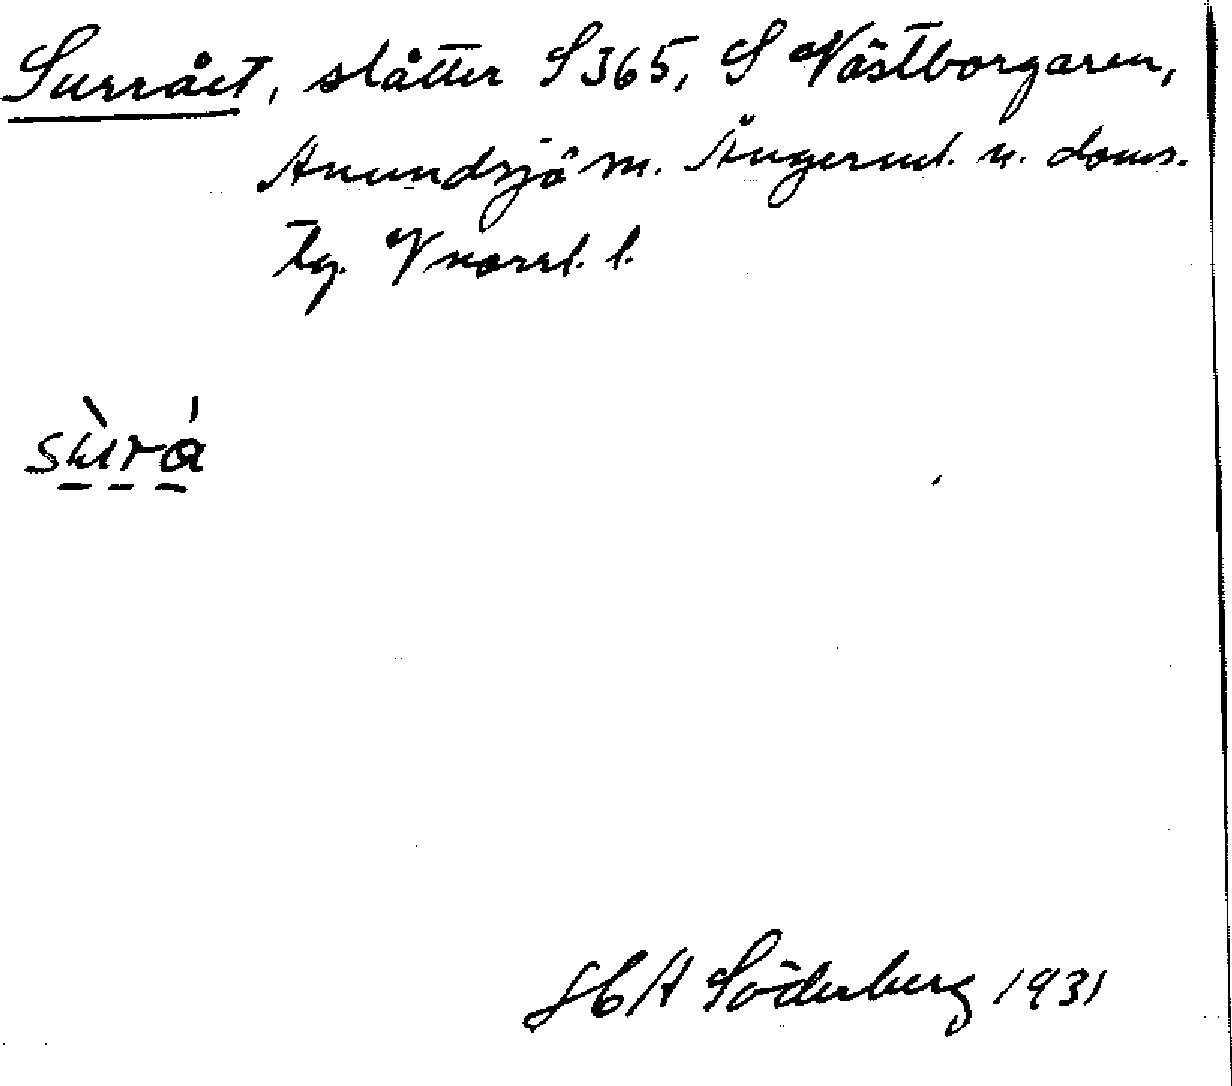 Surrået, slåtter S365, S Västborgaren,
Anundsjö sn. Ångerml. n. doms.
tg. Vnorrl. l.
sùrá
H A Söderberg 1931